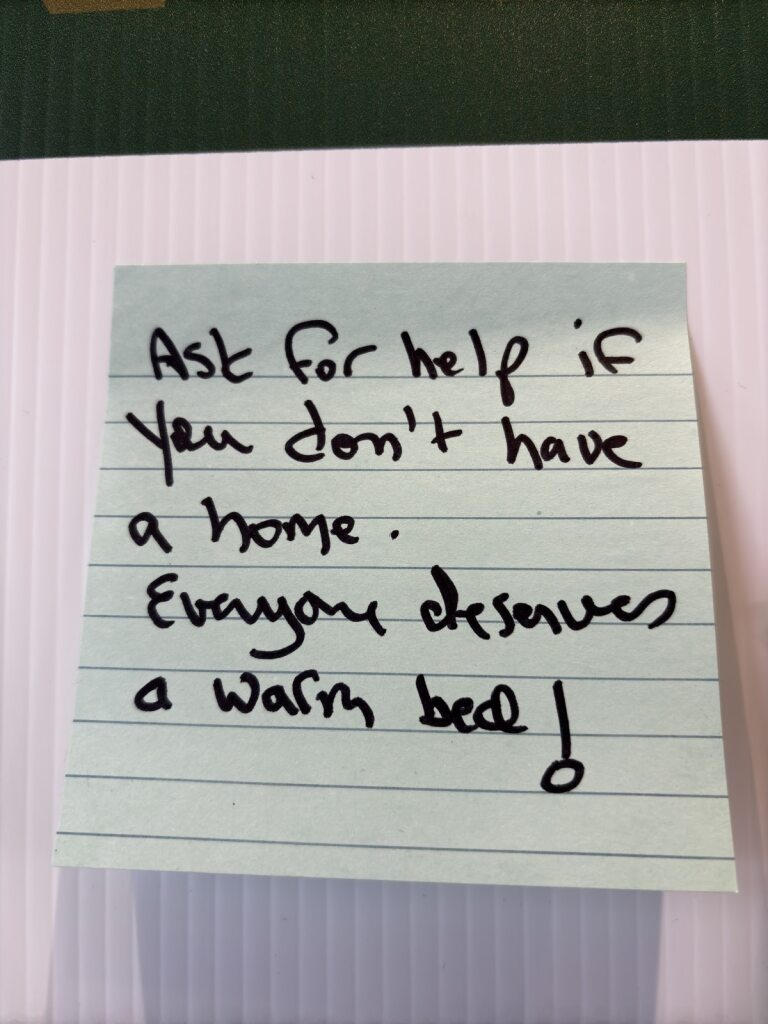 Ask for help if
you don't have
a home.
Everyone deserves
a warm bed!